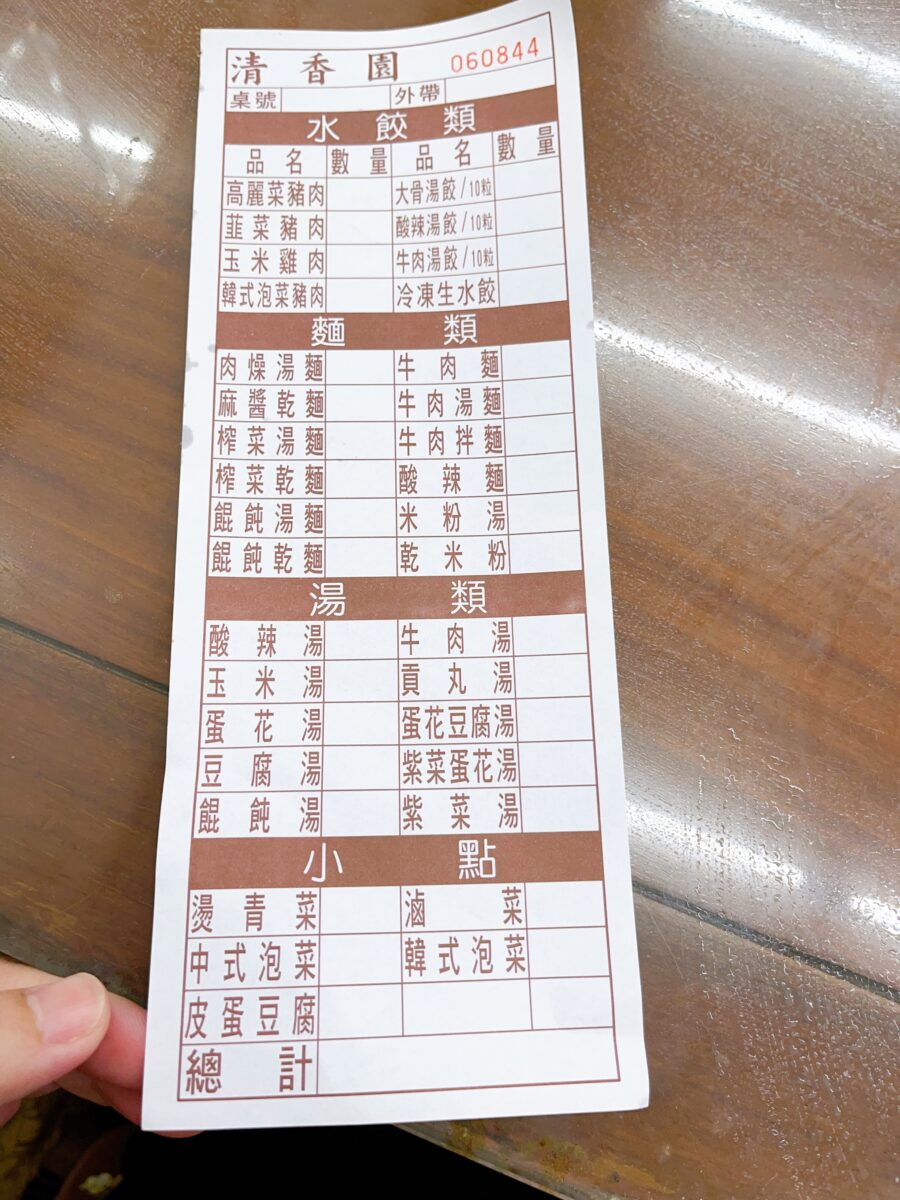 清香園 060844
桌號 外帶
水餃類
品名 數量 品名 數量
高麗菜豬肉 大骨湯餃/10粒
韮菜豬肉 酸辣湯餃/10粒
玉米雞肉 牛肉湯餃/10粒
韓式泡菜豬肉 冷凍生水餃
麵類
肉燥湯麵 牛肉麵
麻醬乾麵 牛肉湯麵
榨菜湯麵 牛肉拌麵
榨菜乾麵 酸辣麵
餛飩湯麵 米粉湯
餛飩乾麵 乾米粉
湯類
酸辣湯 牛肉湯
玉米湯 貢丸湯
蛋花湯 蛋花豆腐湯
豆腐湯 紫菜蛋花湯
餛飩湯 紫菜湯
小點
燙青菜 滷菜
中式泡菜 韓式泡菜
皮蛋豆腐
總計